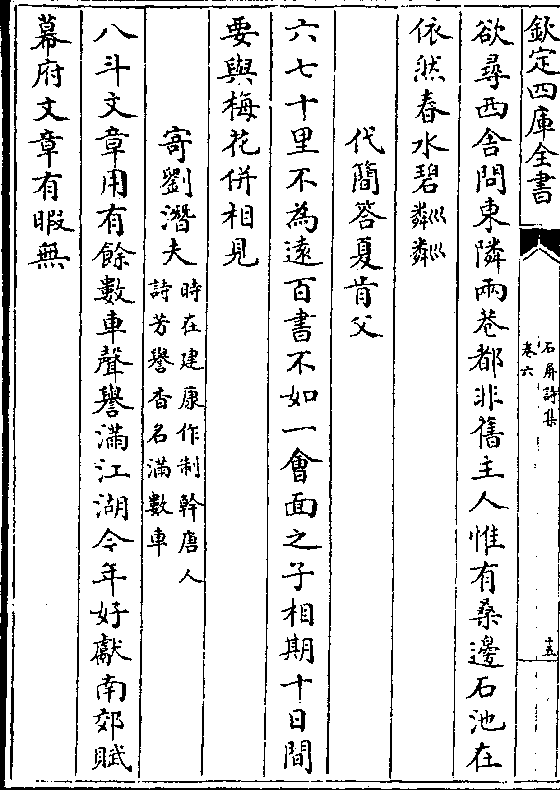 欽定四庫全書
石屏詩集
卷六
十五
欲尋西舍問東隣兩巷都非舊主人惟有桑邊石池在
依然春水碧粼粼
代簡答夏肯父
六七十里不為遠百書不如一會面之子相期十日間
要與梅花併相見
寄劉潛夫
時在建康作制幹唐人
詩芳譽香名滿數車
八斗文章用有餘數車聲譽滿江湖今年好獻南郊賦
幕府文章有暇無